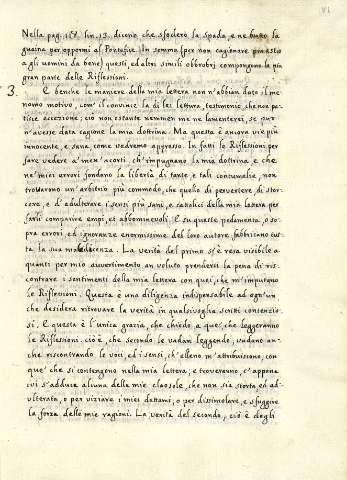 Nella pag. 118. lin. 13. dicono che sfodero la spada, e ne butto la
guaina per oppormi al Pontefice. In somma per non cagionare
a gli uomini da bene, questi, ed altri simili obbrobrj compongono la piu
gran parte delle Riflessioni.
3. E benche le maniere della mia lettera non n'abbian dato il me
nomo motivo, com'il convince la di lei lettura, testimonio, che non pa
tisce accezzione; cio non ostante nemmen me ne lamenterei, se pur
n'avesse data cagione la mia dottrina. Ma questa è ancora vie piu
innocente, e sana, come vedremo appresso. In fatti le Riflessioni per
fare vedere a' men' acorti ch'impugnano la mia dottrina e che
ne' miei errori fondano la libertà di tante, e tali contumelie, non
trovarono un'arbitrio piu commodo, che quello di pervertere, di stor
cere, e d'adulterare i sensi piu sani, e catolici della mia lettera per
farli comparire empi, ed abbominevoli. E su queste pedamenta, o so
pra errori, ed ignoranze enormissime del loro autore fabbricano tut
ta la sua maledicenza. La verità del primo si è resa visibile a
quanti per mio avvertimento an voluto prendersi la pena di ris
contrare i sentimenti della mia lettera con quei, che m'imputano
le Riflessioni. Questa è una diligenza indispensabile ad ogn'un
che desidera ritrovare la verità in qualsivoglia scritti contenzio
si. E questa è l'unica grazia, che chiedo a que', che leggeranno
le Riflessioni. ciò è, che secondo le vadan leggendo, vadan an
che riscontrando le voci, ed i sensi, ch'elleno m'attribuiscono, con
que' che si contengono nella mia lettera, e troveranno, ch'appena
ivi s'adduce alcuna delle mie clausole, che non sia storta ed ad
ulterata, o per viziare i miei dettami, o per dissimolare, e sfuggire
la forza delle mie ragioni. La verità del secondo, ciò è degli